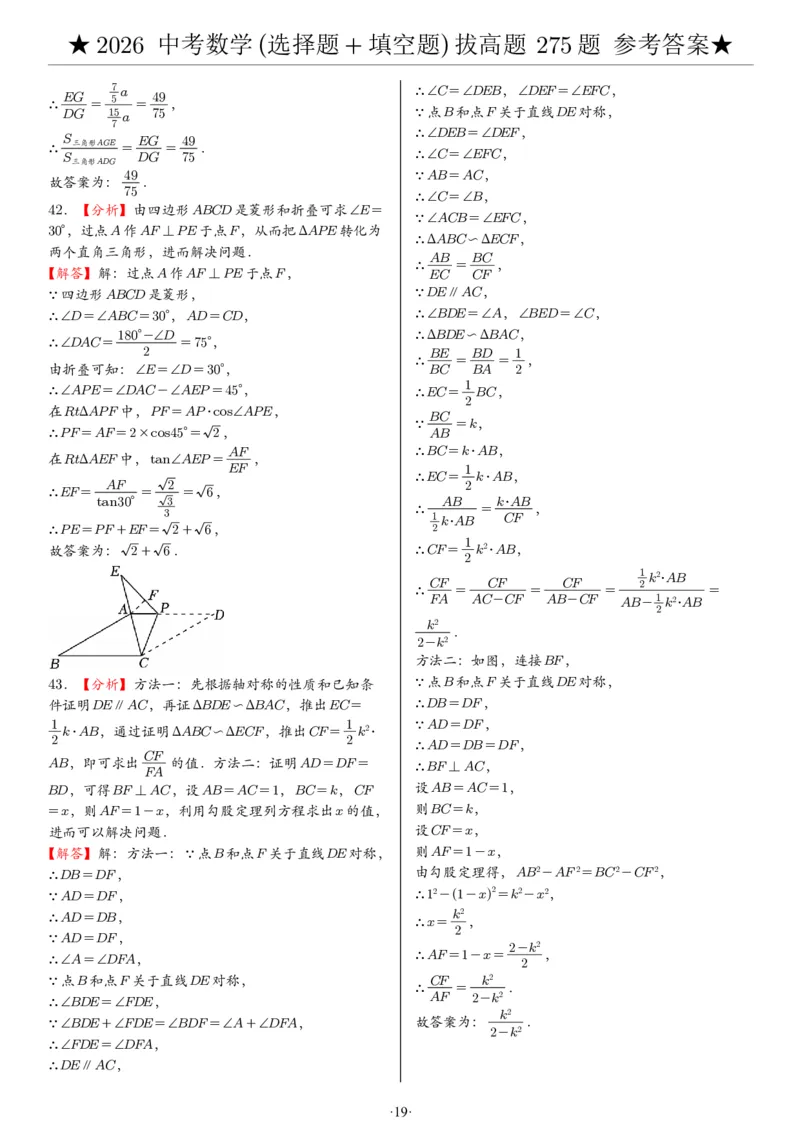 ★ 2026 中考数学(选择题+填空题)拔高题 275题 参考答案★
∴EG/DG=(7/5 a)/(15/7 a)=49/75,
∴S三角形AGE/S三角形ADG=EG/DG=49/75.
故答案为：49/75.
42. 【分析】由四边形ABCD是菱形和折叠可求∠E=
30°, 过点A作AF⊥PE于点F, 从而把ΔAPE转化为
两个直角三角形, 进而解决问题.
【解答】解：过点A作AF⊥PE于点F,
∵四边形ABCD是菱形,
∴∠D=∠ABC=30°, AD=CD,
∴∠DAC=(180°-∠D)/2=75°,
由折叠可知：∠E=∠D=30°,
∴∠APE=∠DAC-∠AEP=45°,
在RtΔAPF中, PF=AP·cos∠APE,
∴PF=AF=2×cos45°=√2,
在RtΔAEF中, tan∠AEP=AF/EF,
∴EF=AF/tan30°=√2/(√3/3)=√6,
∴PE=PF+EF=√2+√6,
故答案为：√2+√6.
E
F
A P D
B C
43. 【分析】方法一：先根据轴对称的性质和已知条
件证明DE∥AC, 再证ΔBDE∽ΔBAC, 推出EC=
1/2 k·AB, 通过证明ΔABC∽ΔECF, 推出CF=1/2 k²·
AB, 即可求出CF/FA的值. 方法二：证明AD=DF=
BD, 可得BF⊥AC, 设AB=AC=1, BC=k, CF
=x, 则AF=1-x, 利用勾股定理列方程求出x的值,
进而可以解决问题.
【解答】解：方法一：∵点B和点F关于直线DE对称,
∴DB=DF,
∵AD=DF,
∴AD=DB,
∵AD=DF,
∴∠A=∠DFA,
∵点B和点F关于直线DE对称,
∴∠BDE=∠FDE,
∵∠BDE+∠FDE=∠BDF=∠A+∠DFA,
∴∠FDE=∠DFA,
∴DE∥AC,
∴∠C=∠DEB, ∠DEF=∠EFC,
∵点B和点F关于直线DE对称,
∴∠DEB=∠DEF,
∴∠C=∠EFC,
∵AB=AC,
∴∠C=∠B,
∵∠ACB=∠EFC,
∴ΔABC∽ΔECF,
∴AB/EC=BC/CF,
∵DE∥AC,
∴∠BDE=∠A, ∠BED=∠C,
∴ΔBDE∽ΔBAC,
∴BE/BC=BD/BA=1/2,
∴EC=1/2 BC,
∵BC/AB=k,
∴BC=k·AB,
∴EC=1/2 k·AB,
∴AB/(1/2 k·AB)=k·AB/CF,
∴CF=1/2 k²·AB,
∴CF/FA=CF/(AC-CF)=CF/(AB-CF)=(1/2 k²·AB)/(AB-1/2 k²·AB)=
k²/(2-k²).
方法二：如图, 连接BF,
∵点B和点F关于直线DE对称,
∴DB=DF,
∵AD=DF,
∴AD=DB=DF,
∴BF⊥AC,
设AB=AC=1,
则BC=k,
设CF=x,
则AF=1-x,
由勾股定理得, AB²-AF²=BC²-CF²,
∴1²-(1-x)²=k²-x²,
∴x=k²/2,
∴AF=1-x=(2-k²)/2,
∴CF/AF=k²/(2-k²).
故答案为：k²/(2-k²).
·19·